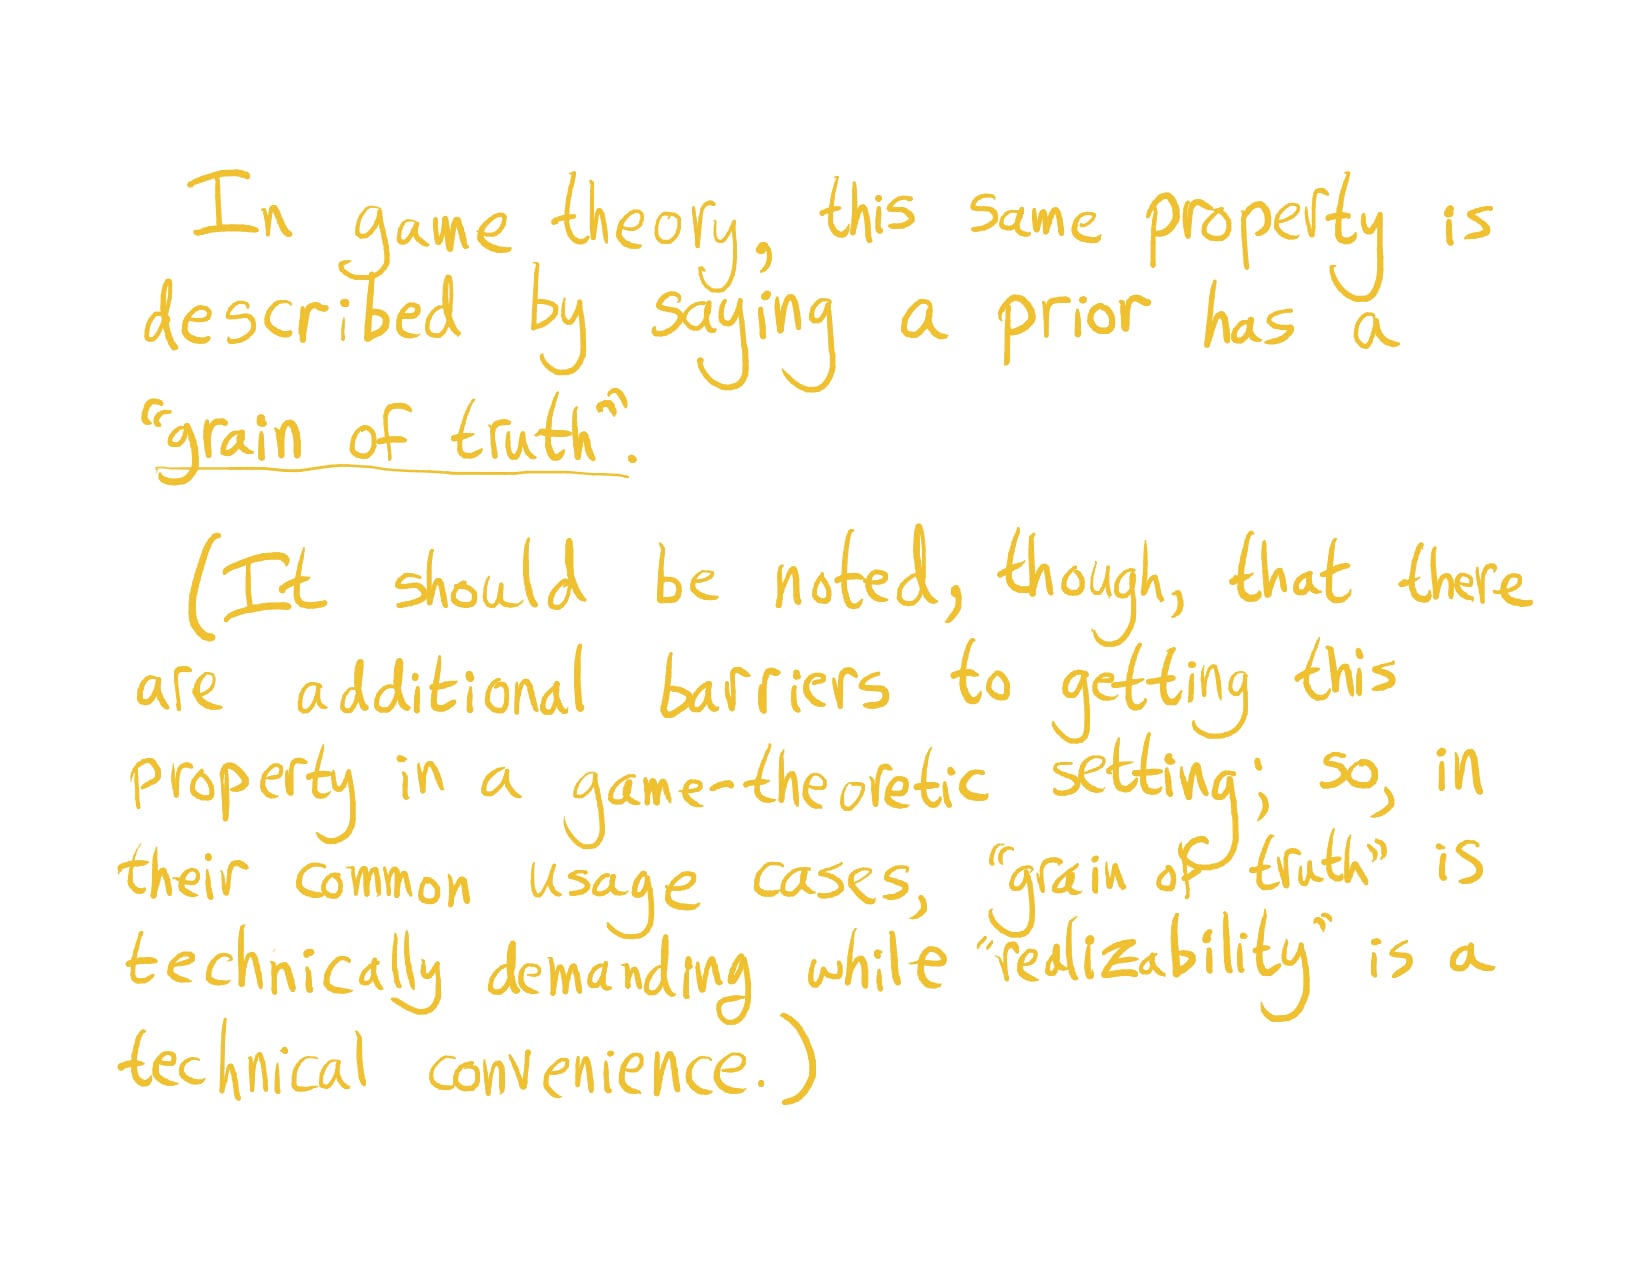 In game theory, this same property is
described by saying a prior has a
“grain of truth”.
(It should be noted, though, that there
are additional barriers to getting this
property in a game-theoretic setting; so, in
their common usage cases, “grain of truth” is
technically demanding while “realizability” is a
technical convenience.)